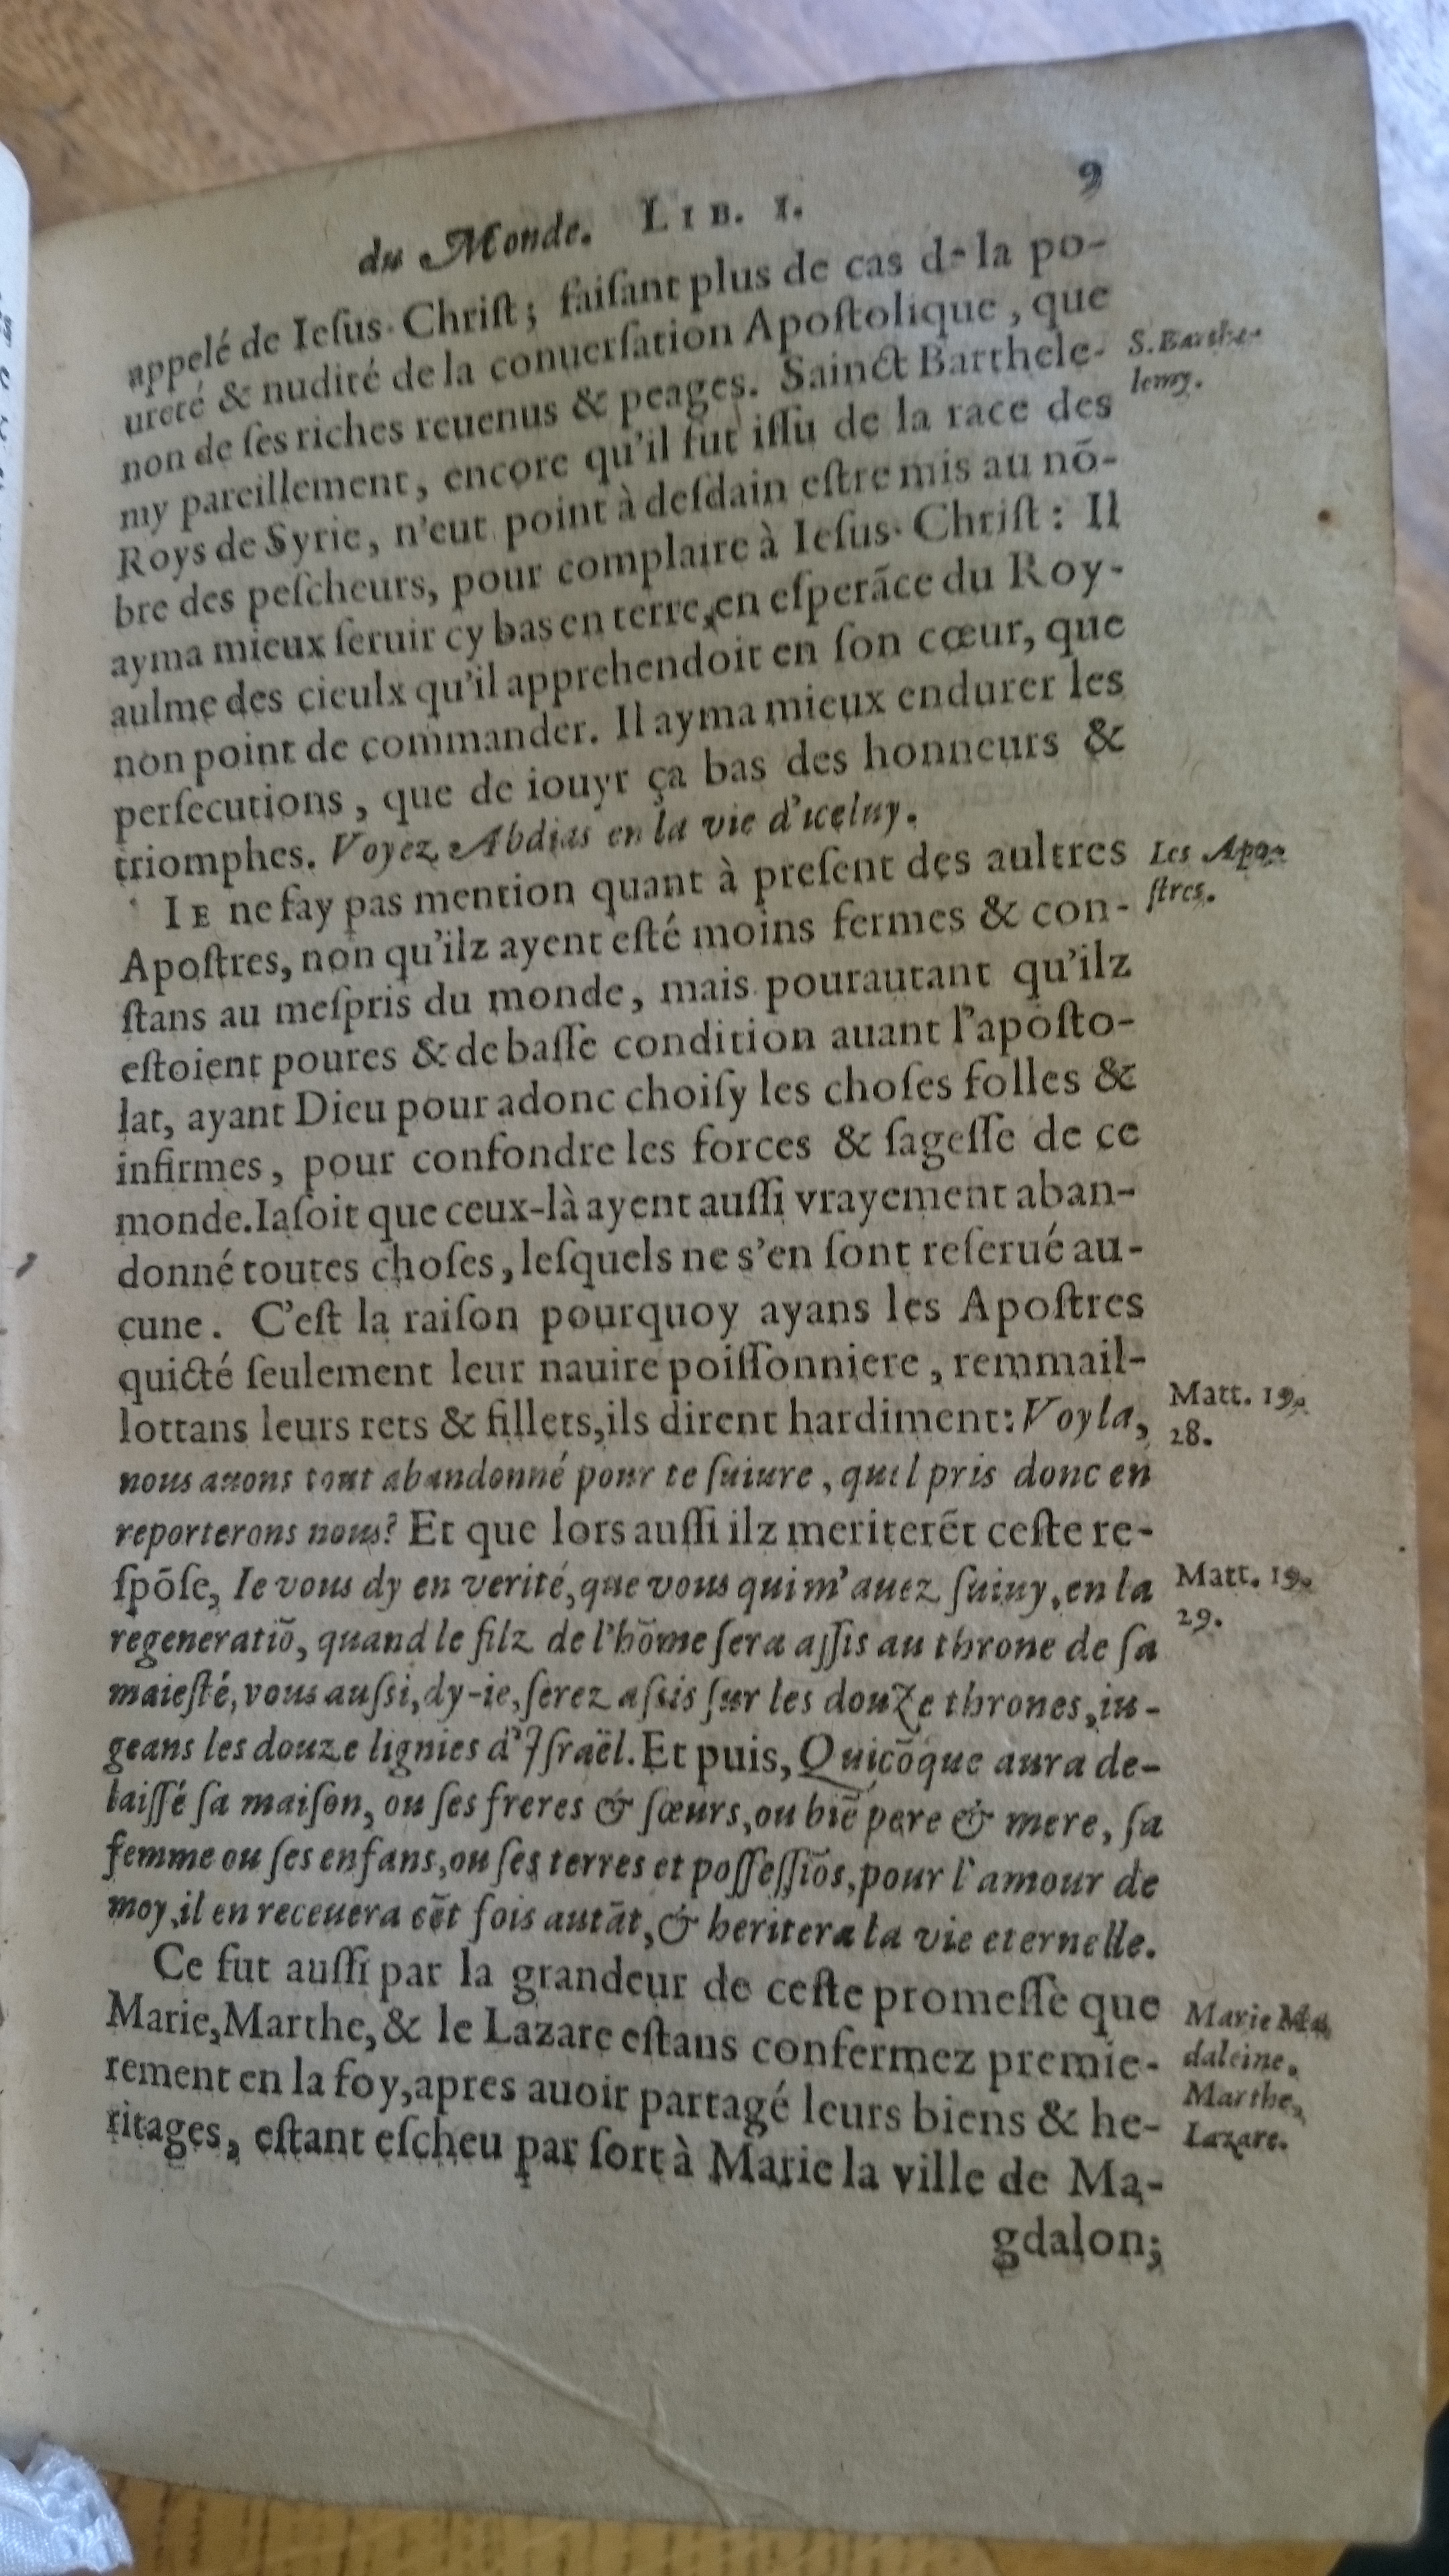 du Monde. LIB. I. 9
appelé de Ieſus-Chriſt; faiſant plus de cas de la po-
ureté & nudité de la conuerſation Apoſtolique, que
non de ſes riches reuenus & peages. Sainct Barthele-
S. Barthe-
lemy.
my pareillement, encore qu'il fut iſſu de la race des
Roys de Syrie, n'eut point à deſdain eſtre mis au nõ-
bre des peſcheurs, pour complaire à Ieſus-Chriſt: Il
ayma mieux ſeruir cy bas en terre, en eſperãce du Roy-
aulme des cieulx qu'il apprehendoit en ſon cœur, que
non point de commander. Il ayma mieux endurer les
perſecutions, que de iouyr ça bas des honneurs &
triomphes. Voyez Abdias en la vie d'iceluy.
IE ne fay pas mention quant à preſent des aultres
Les Apo-
ſtres.
Apoſtres, non qu'ilz ayent eſté moins fermes & con-
ſtans au meſpris du monde, mais pourautant qu'ilz
eſtoient poures & de baſſe condition auant l'apoſto-
lat, ayant Dieu pour adonc choiſy les choſes folles &
infirmes, pour confondre les forces & ſageſſe de ce
monde. Iaſoit que ceux-là ayent auſſi vrayement aban-
donné toutes choſes, leſquels ne s'en ſont reſerué au-
cune. C'eſt la raiſon pourquoy ayans les Apoſtres
quicté ſeulement leur nauire poiſſonniere, remmail-
lottans leurs rets & fillets, ils dirent hardiment: Voyla,
Matt. 19.
28.
nous auons tout abandonné pour te ſuiure, quel pris donc en
reporterons nous? Et que lors auſſi ilz meriterẽt ceſte re-
ſpõſe, Ie vous dy en verité, que vous qui m'auez ſuiuy, en la
Matt. 19.
29.
regeneratiõ, quand le filz de l'hõme ſera aſſis au throne de ſa
maieſté, vous auſsi, dy-ie, ſerez aſsis ſur les douze thrones, iu-
geans les douze lignies d'Iſraël. Et puis, Quicõque aura de-
laiſſé ſa maiſon, ou ſes freres & ſœurs, ou biẽ pere & mere, ſa
femme ou ſes enfans, ou ſes terres et poſſeſſiõs, pour l'amour de
moy, il en receuera cẽt fois autãt, & heritera la vie eternelle.
Ce fut auſſi par la grandeur de ceſte promeſſe que
Marie, Marthe, & le Lazare eſtans confermez premie-
Marie Ma
daleine.
Marthe,
Lazare.
rement en la foy, apres auoir partagé leurs biens & he-
ritages, eſtant eſcheu par ſort à Marie la ville de Ma-
gdalon;